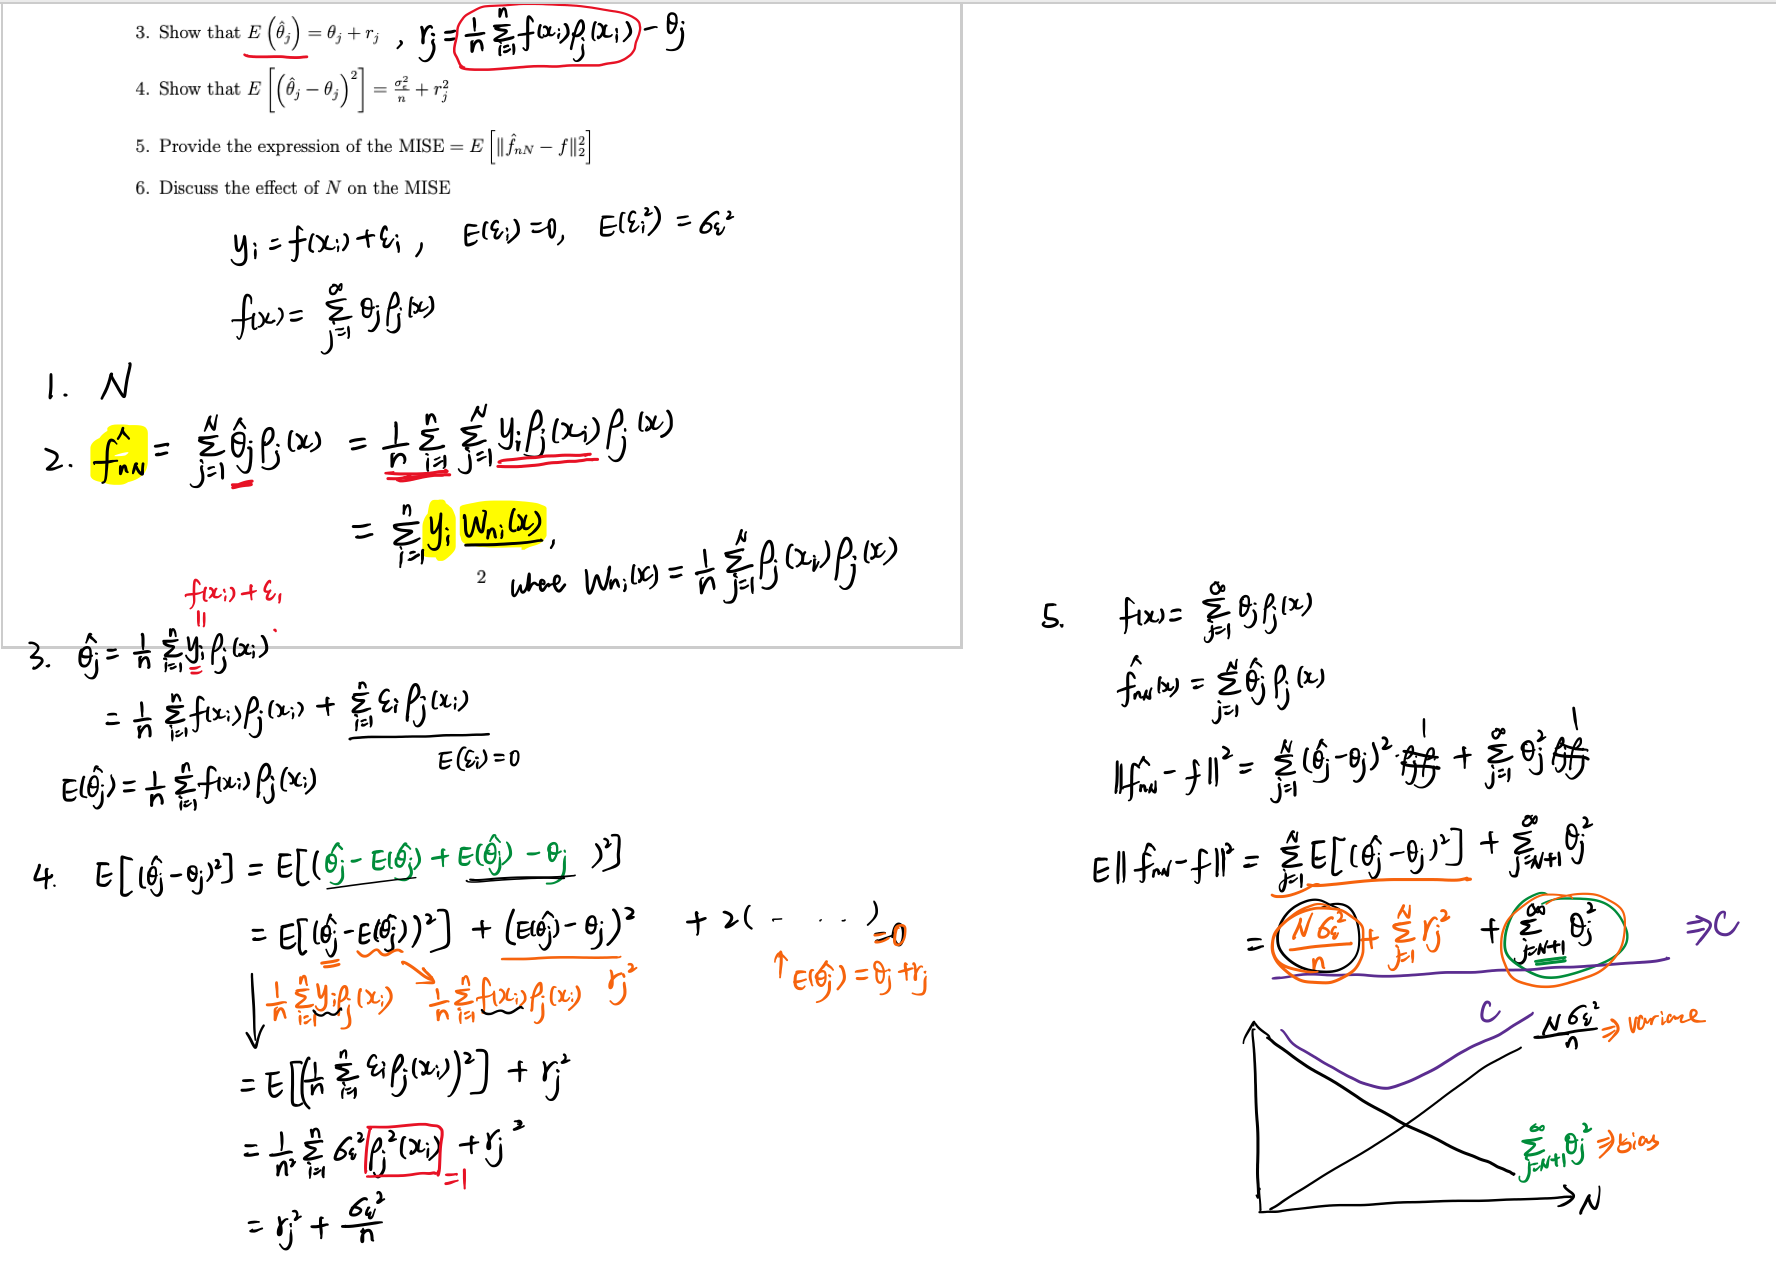 3. Show that E(θ̂_j) = θ_j + r_j , r_j = 1/n Σ_{i=1}^{n} f(x_i)ρ_j(x_i) − θ_j
4. Show that E[(θ̂_j − θ_j)²] = σ_ε²/n + r_j²
5. Provide the expression of the MISE = E[‖f̂_{nN} − f‖₂²]
6. Discuss the effect of N on the MISE
y_i = f(x_i) + ε_i , E(ε_i) = 0, E(ε_i²) = σ_ε²
f(x) = Σ_{j=1}^{∞} θ_j ρ_j(x)
1. N
2. f̂_{nN} = Σ_{j=1}^{N} θ̂_j ρ_j(x) = 1/n Σ_{i=1}^{n} Σ_{j=1}^{N} y_i ρ_j(x_i) ρ_j(x)
= Σ_{i=1}^{n} y_i W_{ni}(x),
2 where W_{ni}(x) = 1/n Σ_{j=1}^{N} ρ_j(x_i) ρ_j(x)
f(x_i) + ε_i
=
3. θ̂_j = 1/n Σ_{i=1}^{n} y_i ρ_j(x_i)
= 1/n Σ_{i=1}^{n} f(x_i) ρ_j(x_i) + Σ_{i=1}^{n} ε_i ρ_j(x_i)
E(ε_i) = 0
E(θ̂_j) = 1/n Σ_{i=1}^{n} f(x_i) ρ_j(x_i)
4. E[(θ̂_j − θ_j)²] = E[(θ̂_j − E(θ̂_j) + E(θ̂_j) − θ_j)²]
= E[(θ̂_j − E(θ̂_j))²] + (E(θ̂_j) − θ_j)² + 2(- · · ·) =0
1/n Σ_{i=1}^{n} y_i ρ_j(x_i) 1/n Σ_{i=1}^{n} f(x_i) ρ_j(x_i) r_j² ↑ E(θ̂_j) = θ_j + r_j
= E[(1/n Σ_{i=1}^{n} ε_i ρ_j(x_i))²] + r_j²
= 1/n² Σ_{i=1}^{n} σ_ε² ρ_j²(x_i) + r_j²
=1
= r_j² + σ_ε²/n
5. f(x) = Σ_{j=1}^{∞} θ_j ρ_j(x)
f̂_{nN}(x) = Σ_{j=1}^{N} θ̂_j ρ_j(x)
1 1
‖f̂_{nN} − f‖² = Σ_{j=1}^{N} (θ̂_j − θ_j)² · ρ_j ρ_j + Σ_{j=1}^{∞} θ_j² ρ_j ρ_j
E‖f̂_{nN} − f‖² = Σ_{j=1}^{N} E[(θ̂_j − θ_j)²] + Σ_{j=N+1}^{∞} θ_j²
= Nσ_ε²/n + Σ_{j=1}^{N} r_j² + Σ_{j=N+1}^{∞} θ_j² ⇒ C
C Nσ_ε²/n ⇒ variance
Σ_{j=N+1}^{∞} θ_j² ⇒ bias
N